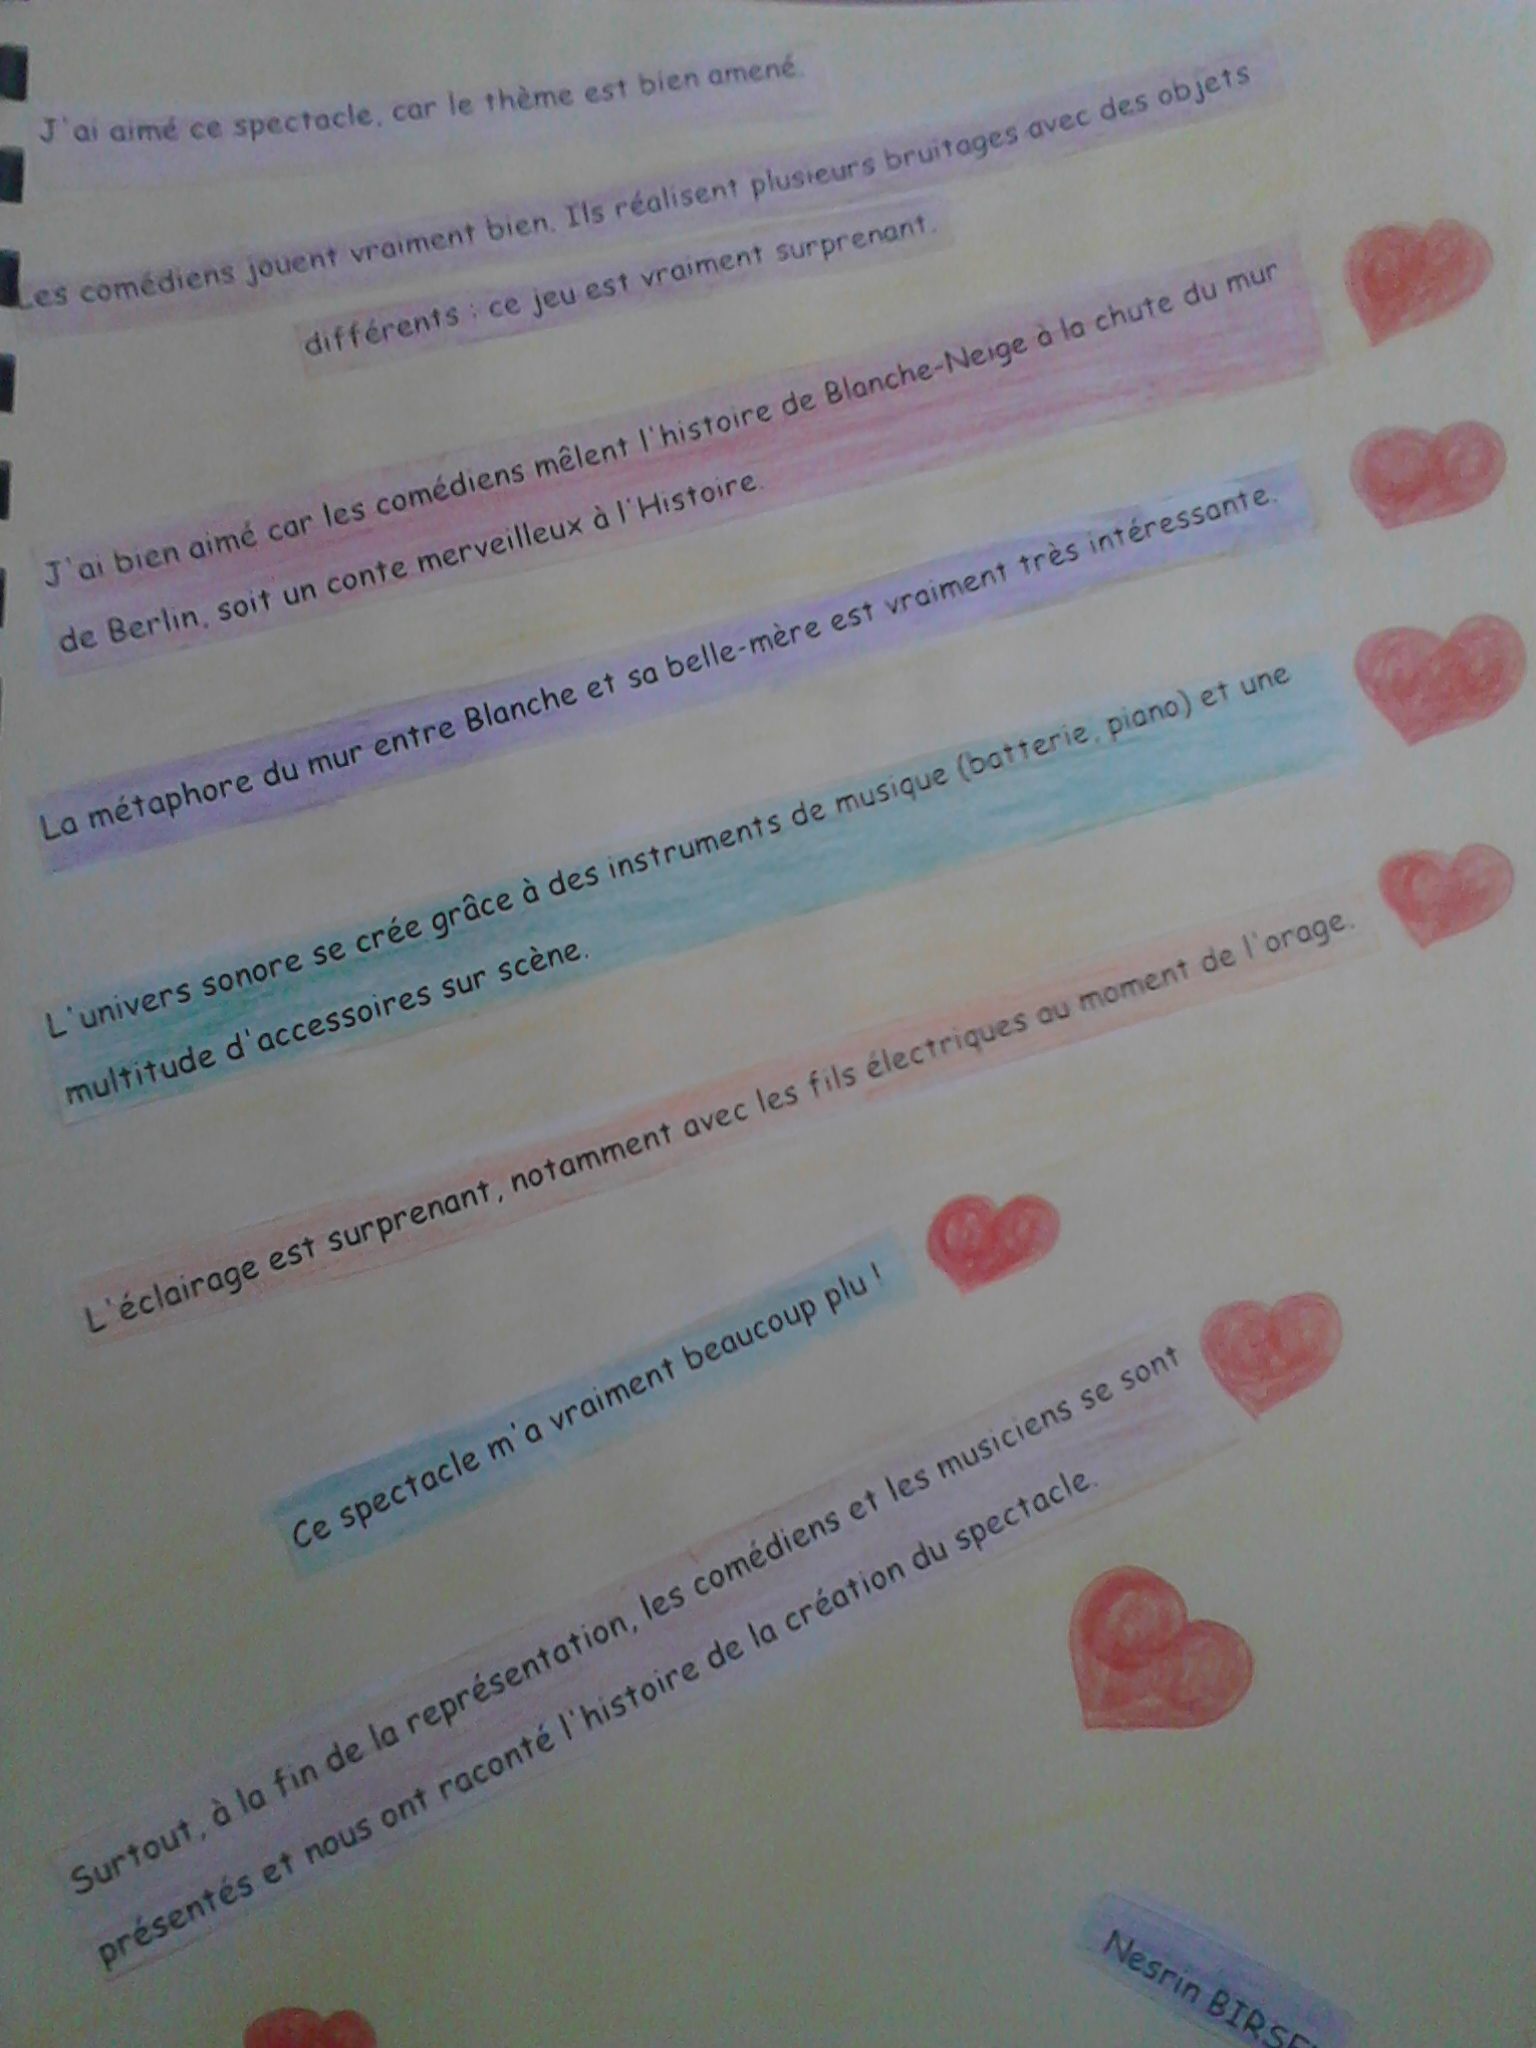 J'ai aimé ce spectacle, car le thème est bien amené.
Les comédiens jouent vraiment bien. Ils réalisent plusieurs bruitages avec des objets
différents : ce jeu est vraiment surprenant.
J'ai bien aimé car les comédiens mêlent l'histoire de Blanche-Neige à la chute du mur
de Berlin, soit un conte merveilleux à l'Histoire.
La métaphore du mur entre Blanche et sa belle-mère est vraiment très intéressante.
L'univers sonore se crée grâce à des instruments de musique (batterie, piano) et une
multitude d'accessoires sur scène.
L'éclairage est surprenant, notamment avec les fils électriques au moment de l'orage.
Ce spectacle m'a vraiment beaucoup plu !
Surtout, à la fin de la représentation, les comédiens et les musiciens se sont
présentés et nous ont raconté l'histoire de la création du spectacle.
Nesrin